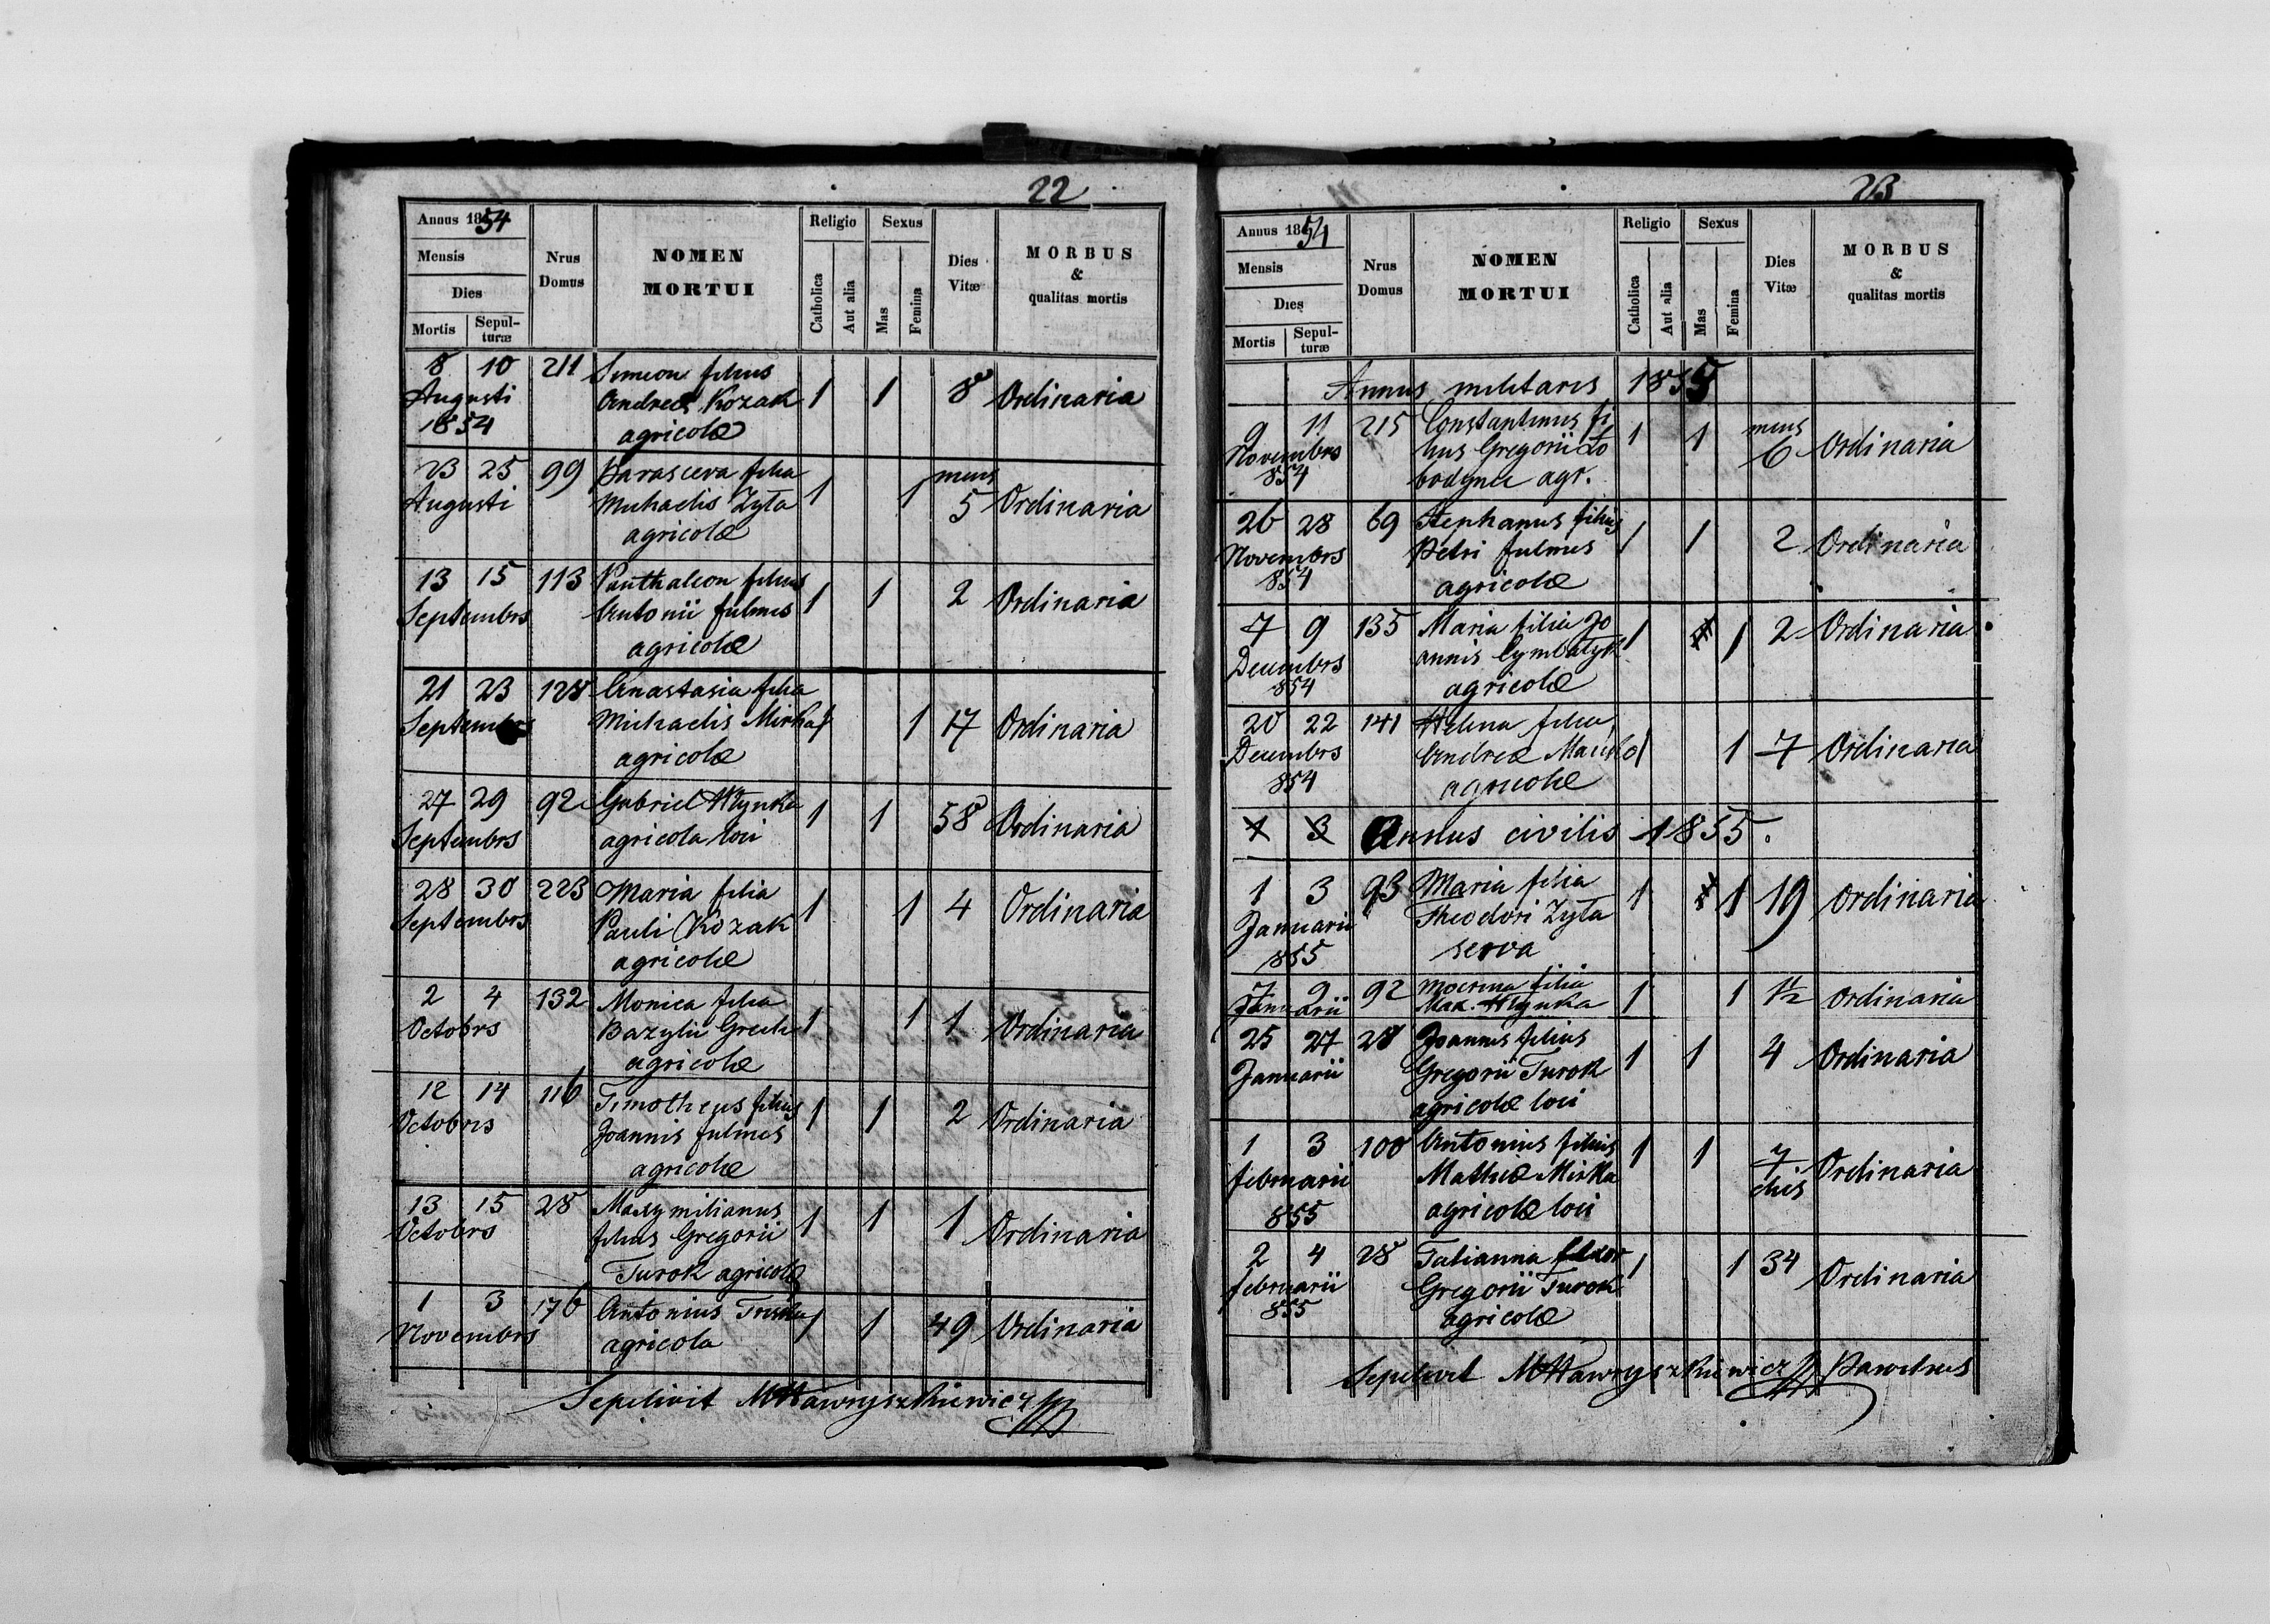 22
Annus 1854
Mensis
Dies
Mortis
Sepul-
turæ
Nrus
Domus
NOMEN
MORTUI
Religio
Catholica
Aut alia
Sexus
Mas
Femina
Dies
Vitæ
MORBUS
&
qualitas mortis
8 10 211 Simeon filius
Augusti Andreæ Kozak 1 1 8 Ordinaria
1854 agricolæ
23 25 99 Parasceva filia mens
Augusti Michaelis Zyła 1 1 5 Ordinaria
agricolæ
13 15 113 Panthaleon filius
Septembrs Antonii fulmes 1 1 2 Ordinaria
agricolæ
21 23 128 Anastasia filia
Septembrs Michaelis Mirka 1 1 17 Ordinaria
agricolæ
27 29 92 Gabriel Hlynka
Septembrs agricola loci 1 1 58 Ordinaria
28 30 223 Maria filia
Septembrs Pauli Kozak 1 1 4 Ordinaria
agricolæ
2 4 132 Monica filia
Octobrs Bazylii 1 1 1 Ordinaria
agricolæ
12 14 116 Timotheus filius
Octobris Joannis fulmes 1 1 2 Ordinaria
agricolæ
13 15 28 Maxymilianus
Octobrs filius Gregorii 1 1 1 Ordinaria
Turok agricolæ
1 3 176 Antonius
Novembrs agricola 1 1 49 Ordinaria
Sepelivit MHawryszkiewicz
23
Annus 1854
Mensis
Dies
Mortis
Sepul-
turæ
Nrus
Domus
NOMEN
MORTUI
Religio
Catholica
Aut alia
Sexus
Mas
Femina
Dies
Vitæ
MORBUS
&
qualitas mortis
Annus militaris 1855
9 11 215 Constantinus fi mens
Novembrs lius Gregorii Ło 1 1 6 Ordinaria
854 bodyna agr.
26 28 69 Stephanus filius
Novembrs Petri fulmes 1 1 2 Ordinaria
854 agricolæ
7 9 135 Maria filia Jo
Decembrs annis Cymbalyk 1 1 2 Ordinaria
854 agricolæ
20 22 141 Helena filia
Decembrs Andreæ 1 1 7 Ordinaria
854 agricolæ
1 3 Annus civilis 1855.
1 3 93 Maria filia
Januarii Theodori Zyła 1 1 19 Ordinaria
855 serva
7 9 92 Mocrina filia
Januarii Max. Hlynka 1 1 1½ Ordinaria
25 27 28 Joannes filius
Januarii Gregorii Turok 1 1 4 Ordinaria
agricolæ loci
1 3 100 Antonius filius
februarii Mathiæ Mirka 1 1 7 dies Ordinaria
855 agricolæ loci
2 4 28 Tatianna uxor
februarii Gregorii Turok 1 1 34 Ordinaria
855 agricolæ
Sepelivit MHawryszkiewicz Parochus